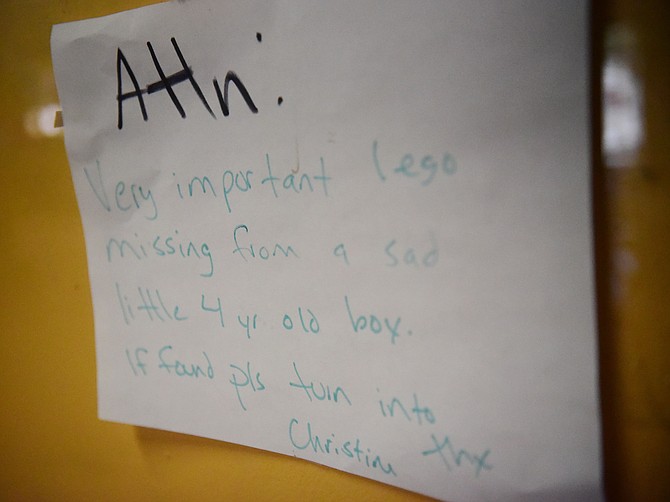 Attn:
Very important lego
missing from a sad
little 4 yr old box.
If found pls turn into
Christina thx